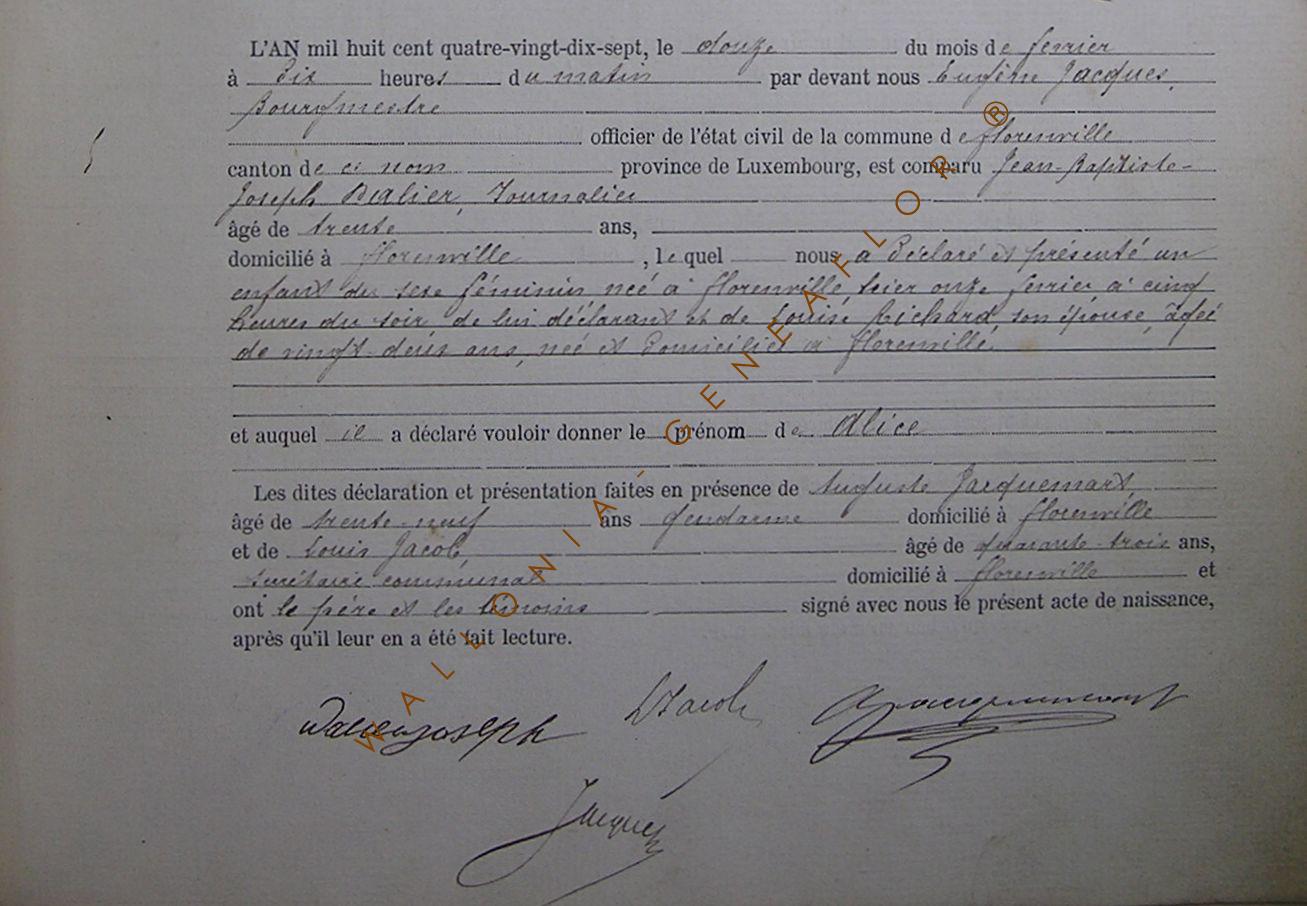 L'AN mil huit cent quatre-vingt-dix-sept, le douze du mois de février
à Dix heures du matin par devant nous Eugène Jacques,
Bourgmestre
officier de l'état civil de la commune de florenville
canton de ce nom province de Luxembourg, est comparu Jean-Baptiste-
Joseph Dalier, Journalier
âgé de trente ans,
domicilié à florenville, le quel nous a Déclaré et présenté un
enfant du sexe féminin née à florenville hier onze février à cinq
heures du soir, de lui déclarant et de Louise Richard, son épouse, âgée
de vingt-deux ans, née et Domiciliée à florenville.
et auquel il a déclaré vouloir donner le prénom de Alice
Les dites déclaration et présentation faites en présence de Auguste Jacquemart,
âgé de trente-neuf ans Gendarme domicilié à florenville
et de Louis Jacob, âgé de quarante-trois ans,
secrétaire communal domicilié à florenville et
ont le père et les témoins signé avec nous le présent acte de naissance,
après qu'il leur en a été fait lecture.
Joseph LJacob Jacquemart
Jacques
WALLONIA-GENEAFLOR®